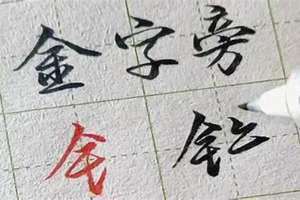 金字旁
钅 鈆